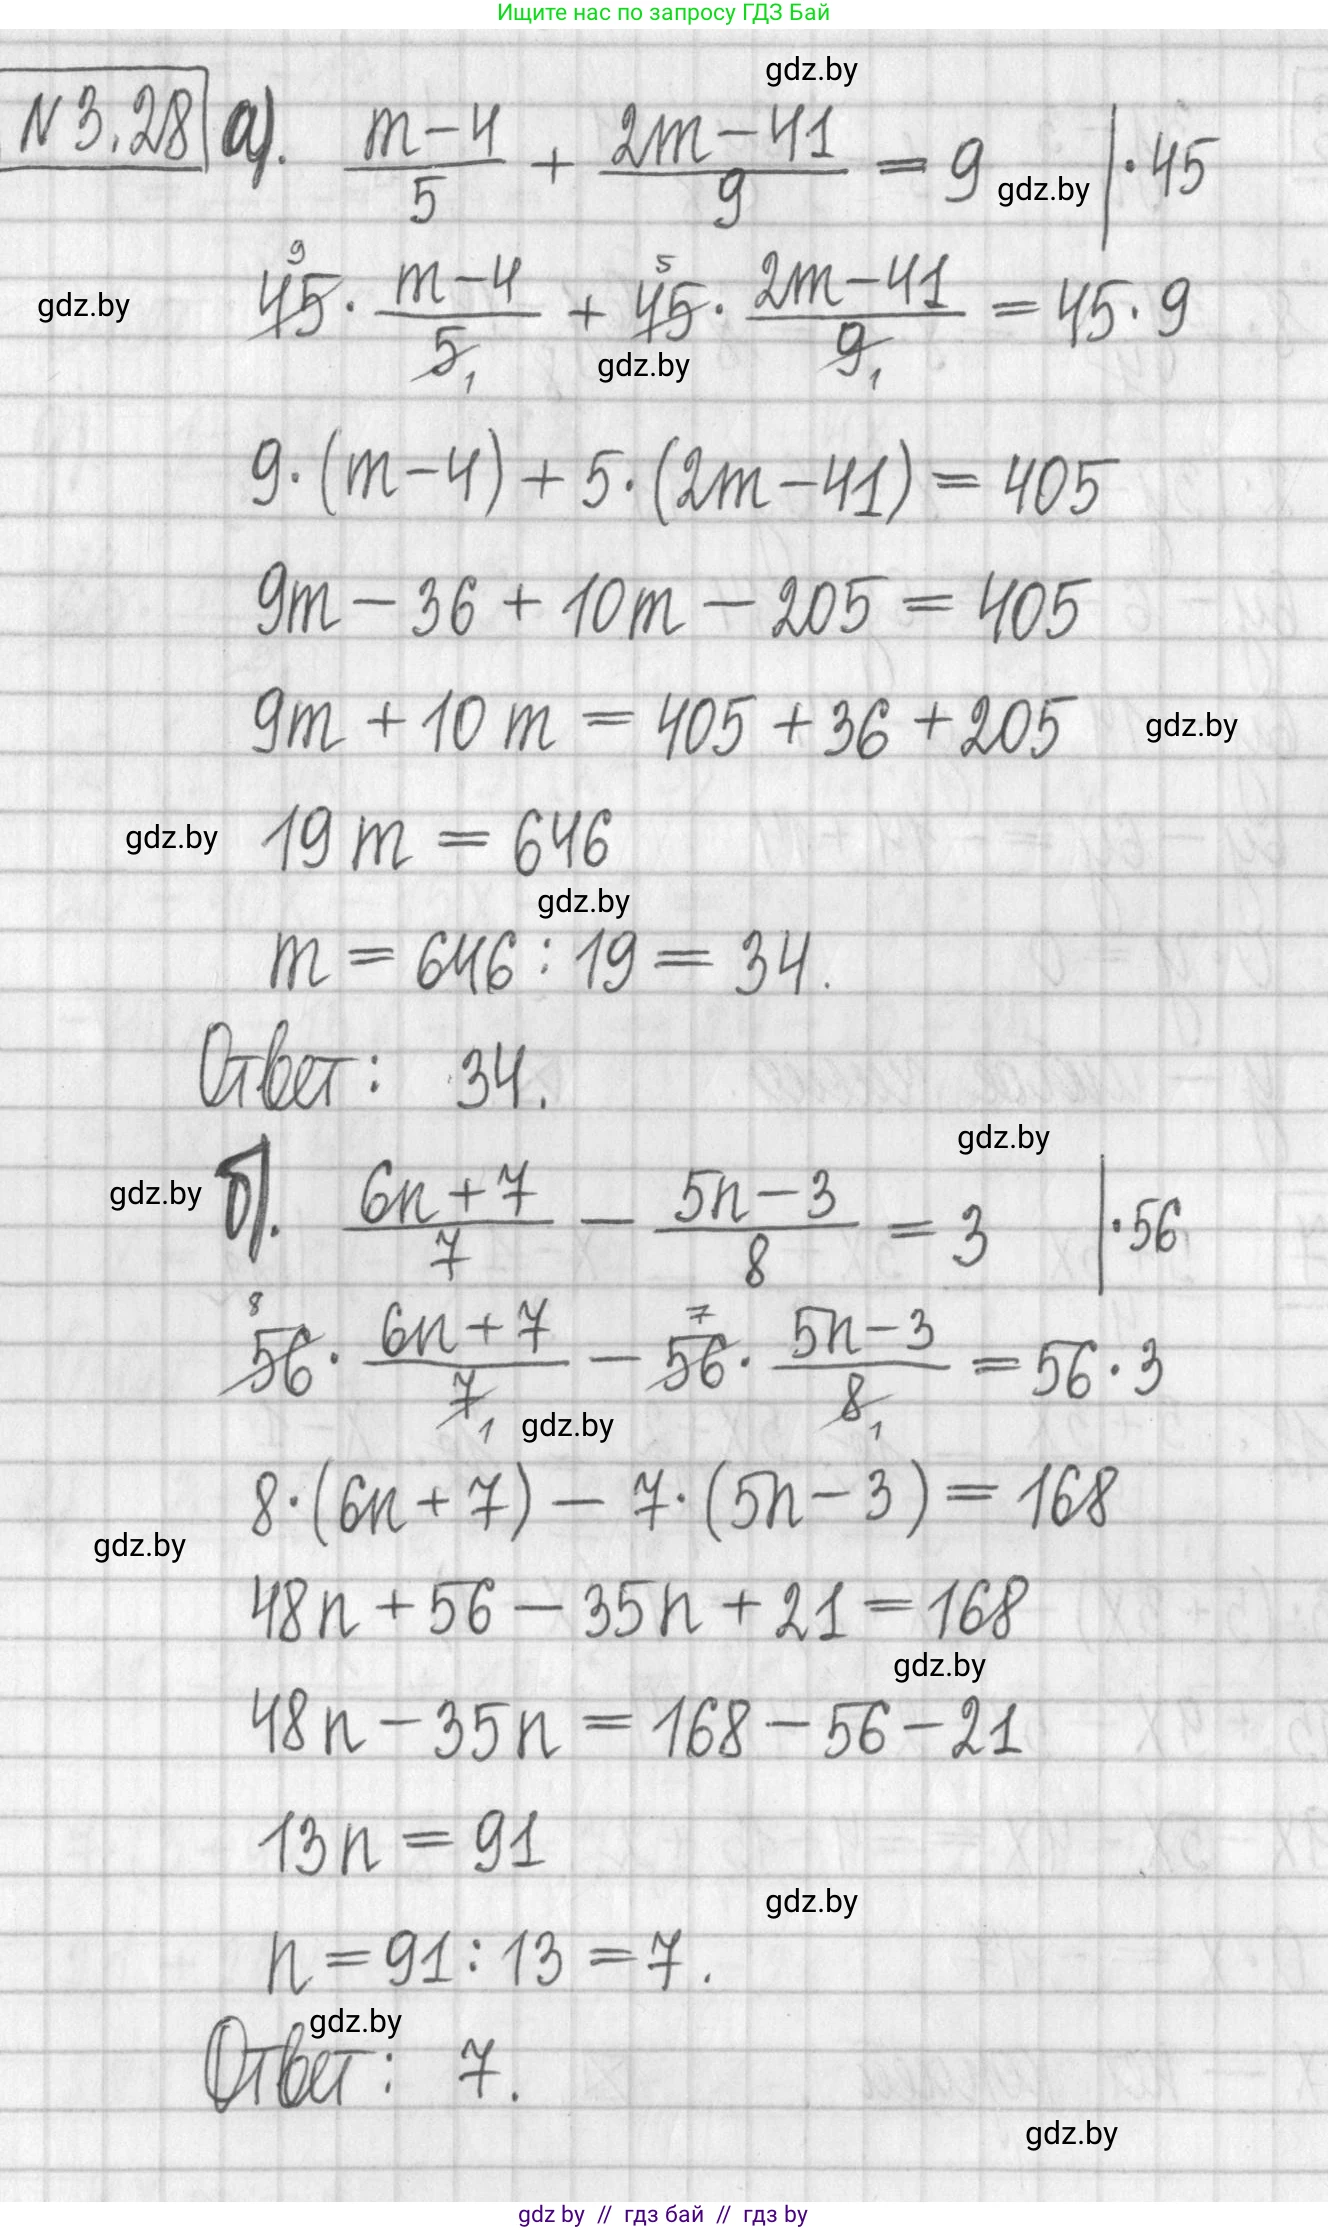 Ищите нас по запросу ГДЗ Бай
gdz.by
N 3.28 а). (m-4)/5 + (2m-41)/9 = 9 |·45
gdz.by
gdz.by
45^9 · (m-4)/5_1 + 45^5 · (2m-41)/9_1 = 45·9
gdz.by
9·(m-4)+5·(2m-41)=405
9m-36+10m-205=405
9m+10m=405+36+205
gdz.by
gdz.by
19m=646
gdz.by
m=646:19=34.
Ответ: 34.
gdz.by
gdz.by
б). (6n+7)/7 - (5n-3)/8 = 3 |·56
56^8 · (6n+7)/7_1 - 56^7 · (5n-3)/8_1 = 56·3
gdz.by
8·(6n+7)-7·(5n-3)=168
gdz.by
48n+56-35n+21=168
gdz.by
48n-35n=168-56-21
13n=91
gdz.by
n=91:13=7.
gdz.by
Ответ: 7.
gdz.by
gdz by // гдз бай // гдз by